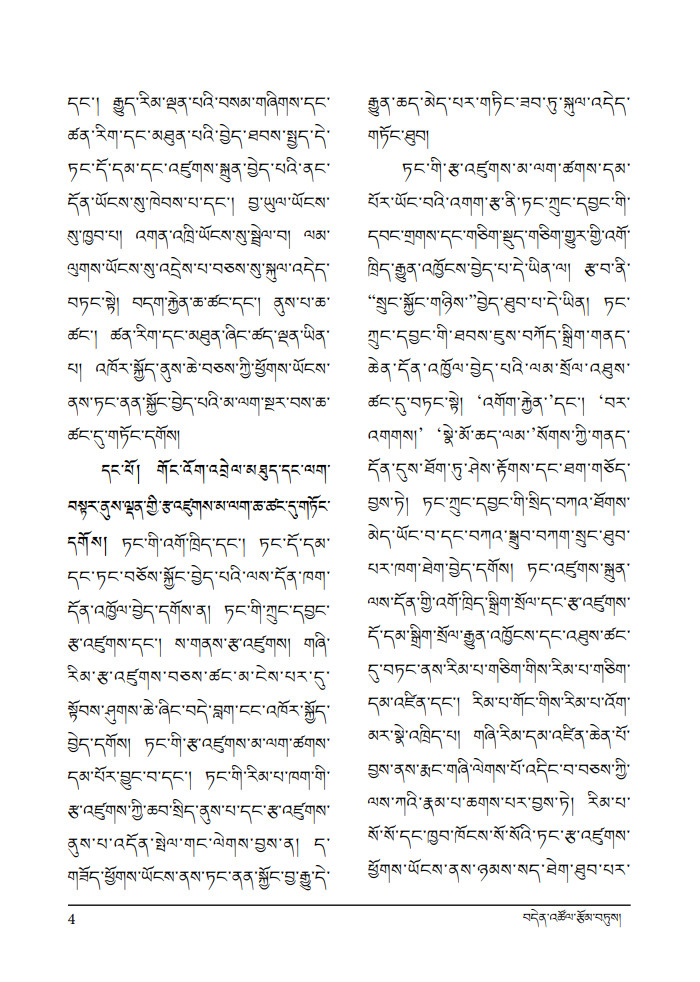 དང་། རྒྱུད་རིམ་ལྡན་པའི་བསམ་གཞིགས་དང་
ཚན་རིག་དང་མཐུན་པའི་བྱེད་ཐབས་སྤྱད་དེ་
ཏང་དོ་དམ་དང་འཛུགས་སྐྲུན་བྱེད་པའི་ནང་
དོན་ཡོངས་སུ་ཁེབས་པ་དང་། བྱ་ཡུལ་ཡོངས་
སུ་ཁྱབ་པ། འགན་འཁྲི་ཡོངས་སུ་སྦྲེལ་བ། ལམ་
ལུགས་ཡོངས་སུ་འདྲེས་པ་བཅས་སུ་སྐུལ་འདེད་
བཏང་སྟེ། བདག་རྐྱེན་ཆ་ཚང་དང་། ནུས་པ་ཆ་
ཚང་། ཚན་རིག་དང་མཐུན་ཞིང་ཚད་ལྡན་ཡིན་
པ། འཁོར་སྐྱོད་ནུས་ཆེ་བཅས་ཀྱི་ཕྱོགས་ཡོངས་
ནས་ཏང་ནན་སྐྱོང་བྱེད་པའི་མ་ལག་སྔར་བས་ཆ་
ཚང་དུ་གཏོང་དགོས།
དང་པོ། གོང་འོག་འབྲེལ་མཐུད་དང་ལག་
བསྟར་ནུས་ལྡན་གྱི་རྩ་འཛུགས་མ་ལག་ཆ་ཚང་དུ་གཏོང་
དགོས། ཏང་གི་འགོ་ཁྲིད་དང་། ཏང་དོ་དམ་
དང་ཏང་བཅོས་སྐྱོང་བྱེད་པའི་ལས་དོན་ཁག་
དོན་འཁྱོལ་བྱེད་དགོས་ན། ཏང་གི་ཀྲུང་དབྱང་
རྩ་འཛུགས་དང་། ས་གནས་རྩ་འཛུགས། གཞི་
རིམ་རྩ་འཛུགས་བཅས་ཚང་མ་ངེས་པར་དུ་
སྟོབས་ཤུགས་ཆེ་ཞིང་བདེ་བླག་ངང་འཁོར་སྐྱོད་
བྱེད་དགོས། ཏང་གི་རྩ་འཛུགས་མ་ལག་ཚགས་
དམ་པོར་བྱུང་བ་དང་། ཏང་གི་རིམ་པ་ཁག་གི་
རྩ་འཛུགས་ཀྱི་ཆབ་སྲིད་ནུས་པ་དང་རྩ་འཛུགས་
ནུས་པ་འདོན་སྤེལ་གང་ལེགས་བྱས་ན། ད་
གཟོད་ཕྱོགས་ཡོངས་ནས་ཏང་ནན་སྐྱོང་བྱ་རྒྱུ་དེ་
རྒྱུན་ཆད་མེད་པར་གཏིང་ཟབ་ཏུ་སྐུལ་འདེད་
གཏོང་ཐུབ།
ཏང་གི་རྩ་འཛུགས་མ་ལག་ཚགས་དམ་
པོར་ཡོང་བའི་འགག་རྩ་ནི་ཏང་ཀྲུང་དབྱང་གི་
དབང་གྲགས་དང་གཅིག་སྡུད་གཅིག་གྱུར་གྱི་འགོ་
ཁྲིད་རྒྱུན་འཁྱོངས་བྱེད་པ་དེ་ཡིན་ལ། རྩ་བ་ནི་
“སྲུང་སྐྱོང་གཉིས་”བྱེད་ཐུབ་པ་དེ་ཡིན། ཏང་
ཀྲུང་དབྱང་གི་ཐབས་ཇུས་བཀོད་སྒྲིག་གནད་
ཆེན་དོན་འཁྱོལ་བྱེད་པའི་ལམ་སྲོལ་འཐུས་
ཚང་དུ་བཏང་སྟེ། ‘འགོག་རྐྱེན་’དང་། ‘བར་
འགགས།’ ‘སྣེ་མོ་ཆད་ལམ་’སོགས་ཀྱི་གནད་
དོན་དུས་ཐོག་ཏུ་ཤེས་རྟོགས་དང་ཐག་གཅོད་
བྱས་ཏེ། ཏང་ཀྲུང་དབྱང་གི་སྲིད་བཀའ་ཐོགས་
མེད་ཡོང་བ་དང་བཀའ་སྒྲུབ་བཀག་སྲུང་ཐུབ་
པར་ཁག་ཐེག་བྱེད་དགོས། ཏང་འཛུགས་སྐྲུན་
ལས་དོན་གྱི་འགོ་ཁྲིད་སྒྲིག་སྲོལ་དང་རྩ་འཛུགས་
དོ་དམ་སྒྲིག་སྲོལ་རྒྱུན་འཁྱོངས་དང་འཐུས་ཚང་
དུ་བཏང་ནས་རིམ་པ་གཅིག་གིས་རིམ་པ་གཅིག་
དམ་འཛིན་དང་། རིམ་པ་གོང་གིས་རིམ་པ་འོག་
མར་སྣེ་འཁྲིད་པ། གཞི་རིམ་དམ་འཛིན་ཆེན་པོ་
བྱས་ནས་རྨང་གཞི་ལེགས་པོ་འདིང་བ་བཅས་ཀྱི་
ལས་ཀའི་རྣམ་པ་ཆགས་པར་བྱས་ཏེ། རིམ་པ་
སོ་སོ་དང་ཁྱབ་ཁོངས་སོ་སོའི་ཏང་རྩ་འཛུགས་
ཕྱོགས་ཡོངས་ནས་ཉམས་སད་ཐེག་ཐུབ་པར་
4
བདེན་འཚོལ་རྩོམ་བཏུས།